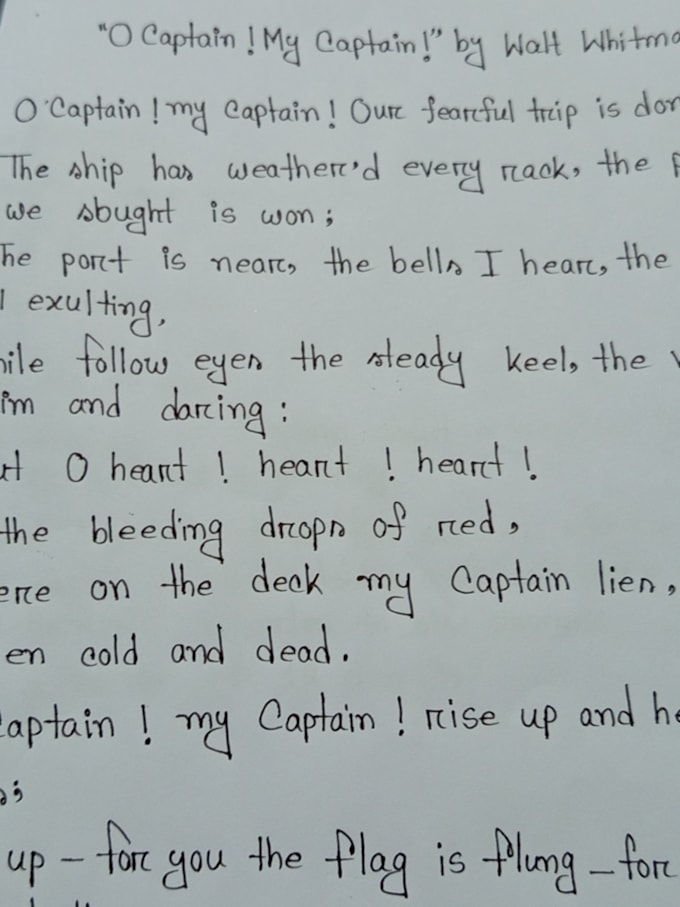 "O Captain! My Captain!" by Walt Whitma
O Captain! my Captain! Our fearful trip is don
The ship has weather'd every rack, the p
we sought is won;
The port is near, the bells I hear, the
l exulting,
hile follow eyes the steady keel, the v
im and daring:
ut O heart! heart! heart!
the bleeding drops of red,
ere on the deck my Captain lies,
en cold and dead.
Captain! my Captain! rise up and he
s;
up - for you the flag is flung - for